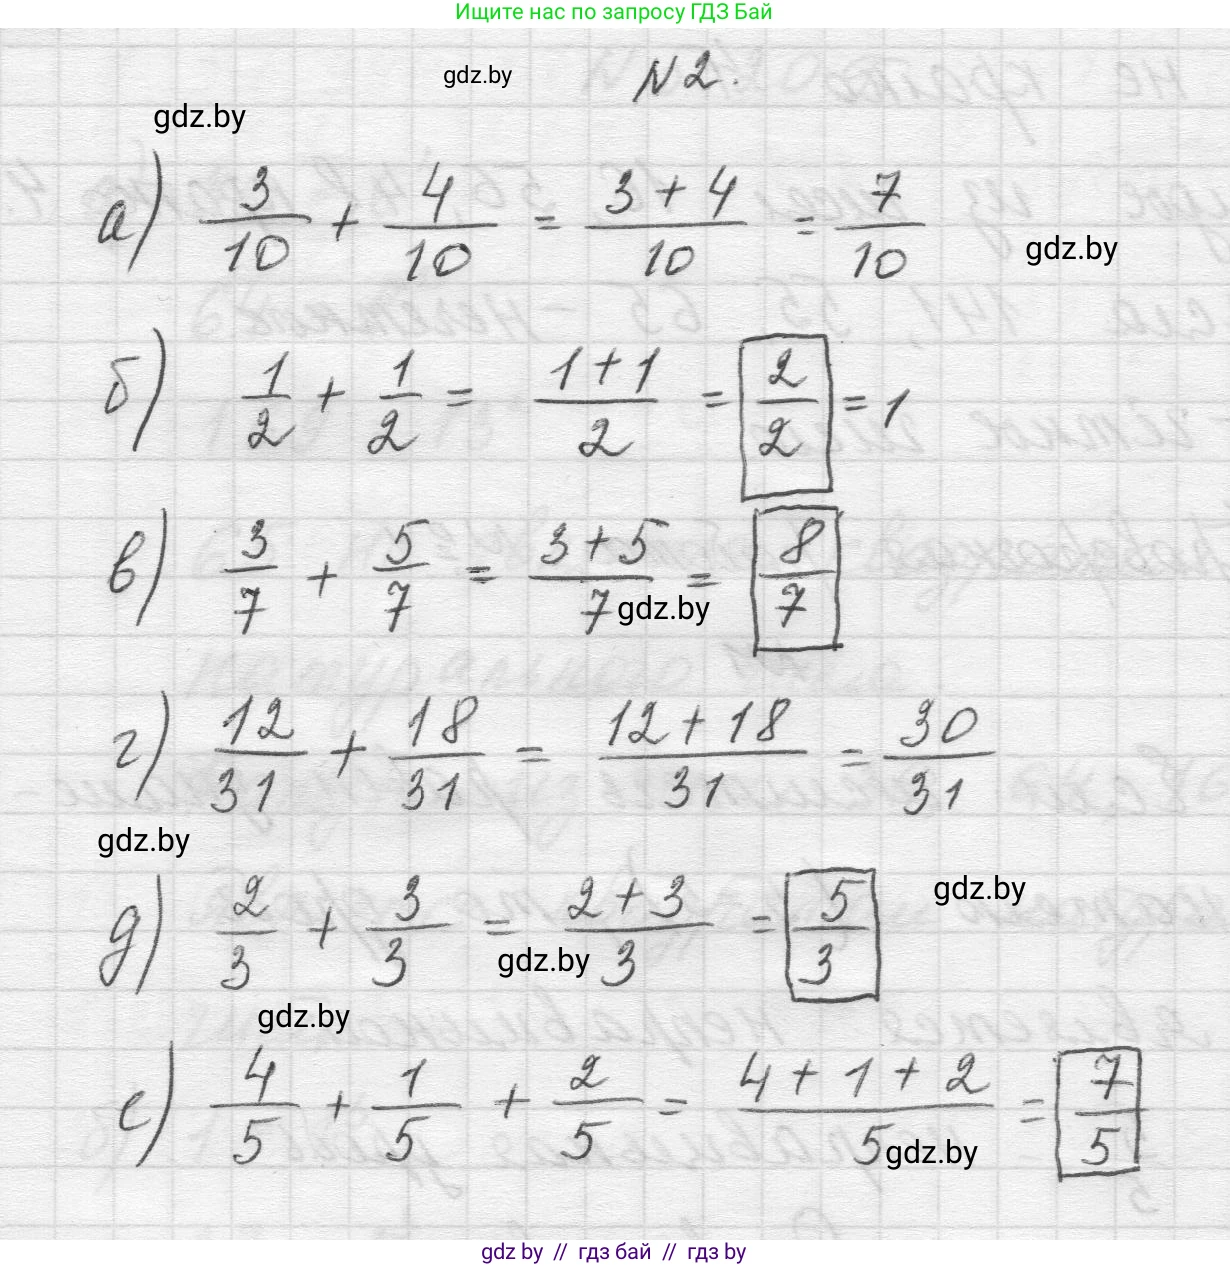 Ищите нас по запросу ГДЗ Бай
gdz.by
N 2.
gdz.by
а) 3/10 + 4/10 = 3 + 4/10 = 7/10
gdz.by
б) 1/2 + 1/2 = 1 + 1/2 = 2/2 = 1
в) 3/7 + 5/7 = 3 + 5/7 = 8/7
gdz.by
г) 12/31 + 18/31 = 12 + 18/31 = 30/31
gdz.by
д) 2/3 + 3/3 = 2 + 3/3 = 5/3
gdz.by
gdz.by
gdz.by
е) 4/5 + 1/5 + 2/5 = 4 + 1 + 2/5 = 7/5
gdz.by
gdz by // гдз бай // гдз by